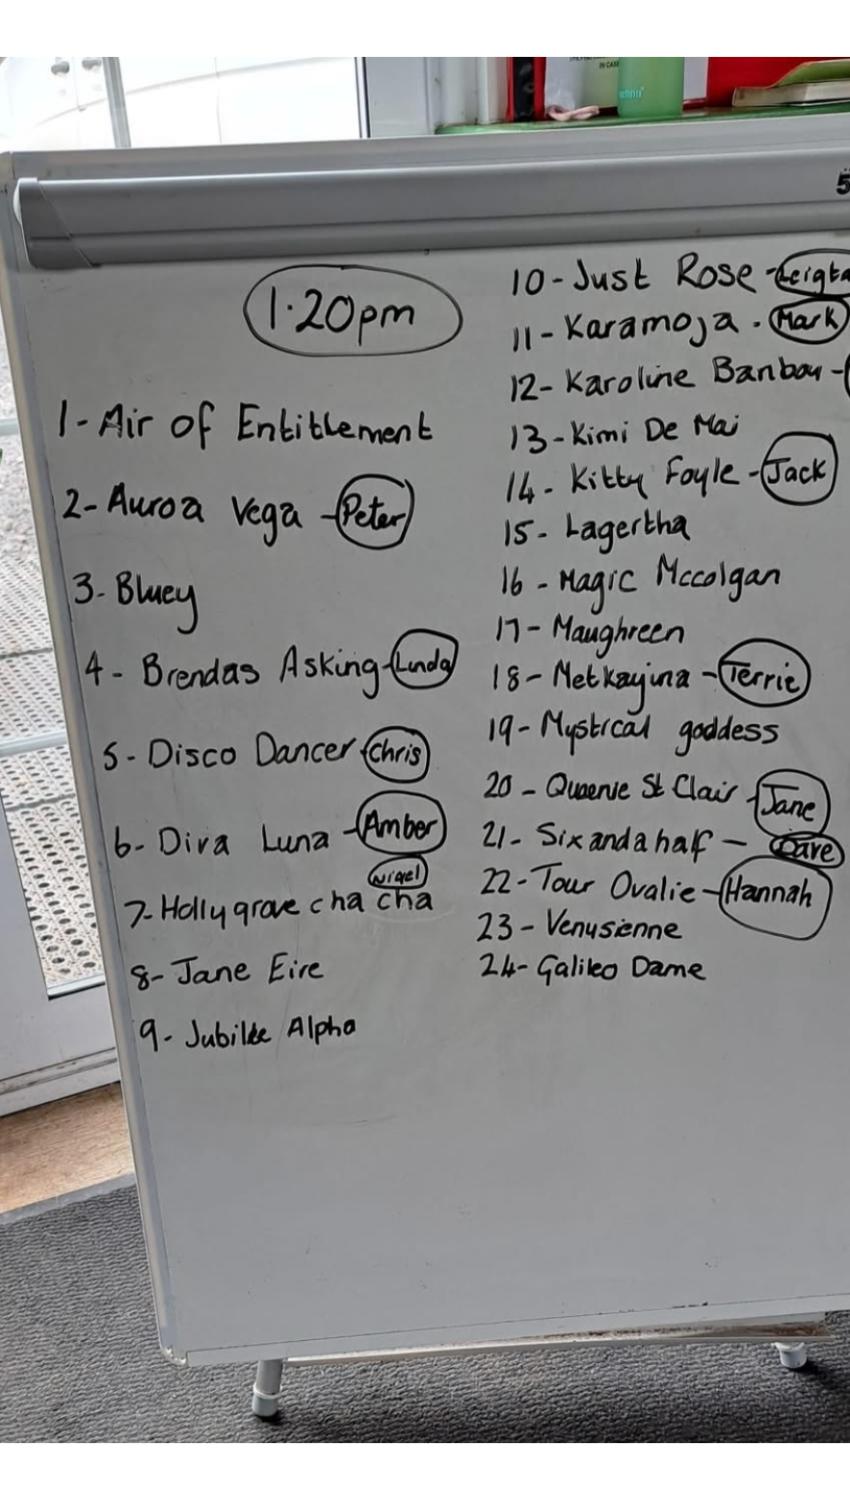 IN CASE
5
1.20pm
1- Air of Entitlement
2- Auroa Vega - Peter
3- Bluey
4- Brendas Asking - Linda
5- Disco Dancer - Chris
6- Diva Luna - Amber
Nigel
7- Hollygrove cha cha
8- Jane Eire
9- Jubilee Alpha
10- Just Rose -
11- Karamoja - Mark
12- Karoline Banbou -
13- Kimi De Mai
14- Kitty Foyle - Jack
15- Lagertha
16- Magic Mccolgan
17- Maughreen
18- Metkayina - Terrie
19- Mystical goddess
20- Queenie St Clair - Jane
21- Six and a half - Dave
22- Tour Ovalie - Hannah
23- Venusienne
24- Galileo Dame